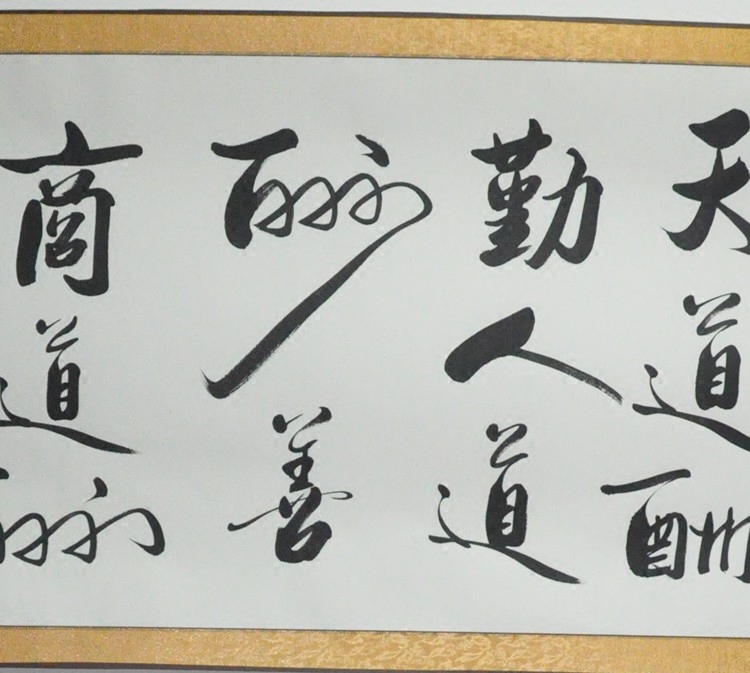 天道酬
勤人道
酬善
商道酬